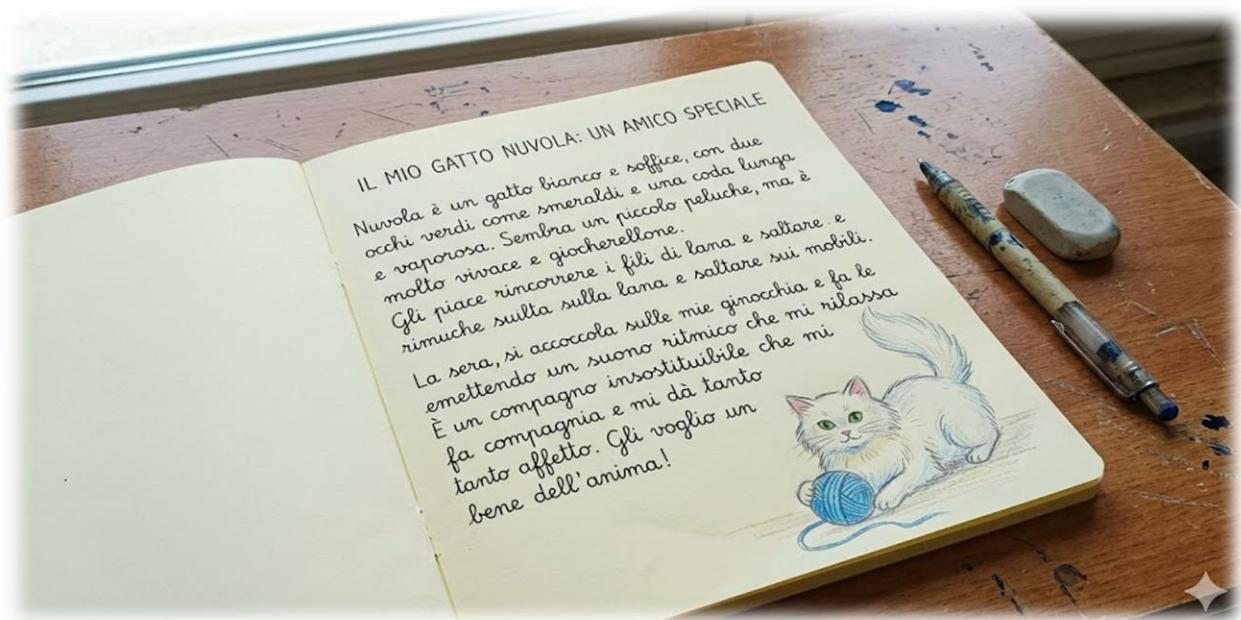 IL MIO GATTO NUVOLA: UN AMICO SPECIALE
Nuvola è un gatto bianco e soffice, con due
occhi verdi come smeraldi e una coda lunga
e vaporosa. Sembra un piccolo peluche, ma è
molto vivace e giocherellone.
Gli piace rincorrere i fili di lana e saltare. e
rimuche suilta sulla lana e saltare sui mobili.
La sera, si accoccola sulle mie ginocchia e fa le
emettendo un suono ritmico che mi rilassa
È un compagno insostituibile che mi
fa compagnia e mi dà tanto
tanto affetto. Gli voglio un
bene dell'anima!